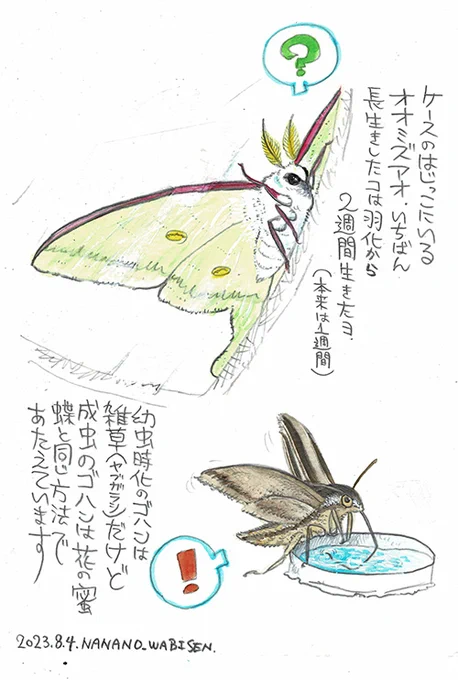 ?
ケースのはじっこにいる
オオミズアオ・いちばん
長生きしたコは羽化から
2週間生きたヨ.
(本来は1週間)
幼虫時化のゴハンは
雑草(ヤブガラシ)だけど
成虫のゴハンは花の蜜
蝶と同じ方法で
あたえています
!
2023.8.4.NANANO_WABISEN.